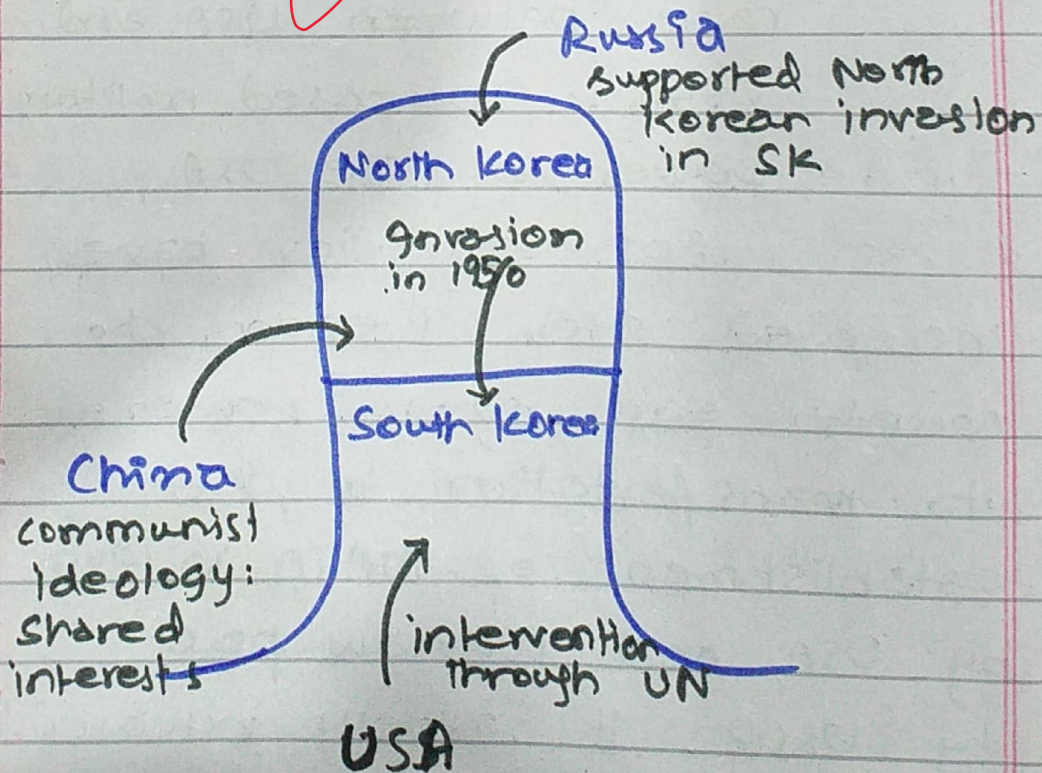 Russia
supported North
Korean invasion
in SK
North Korea
Invasion
in 1950
South Korea
China
communist
ideology:
shared
interests
intervention
through UN
USA